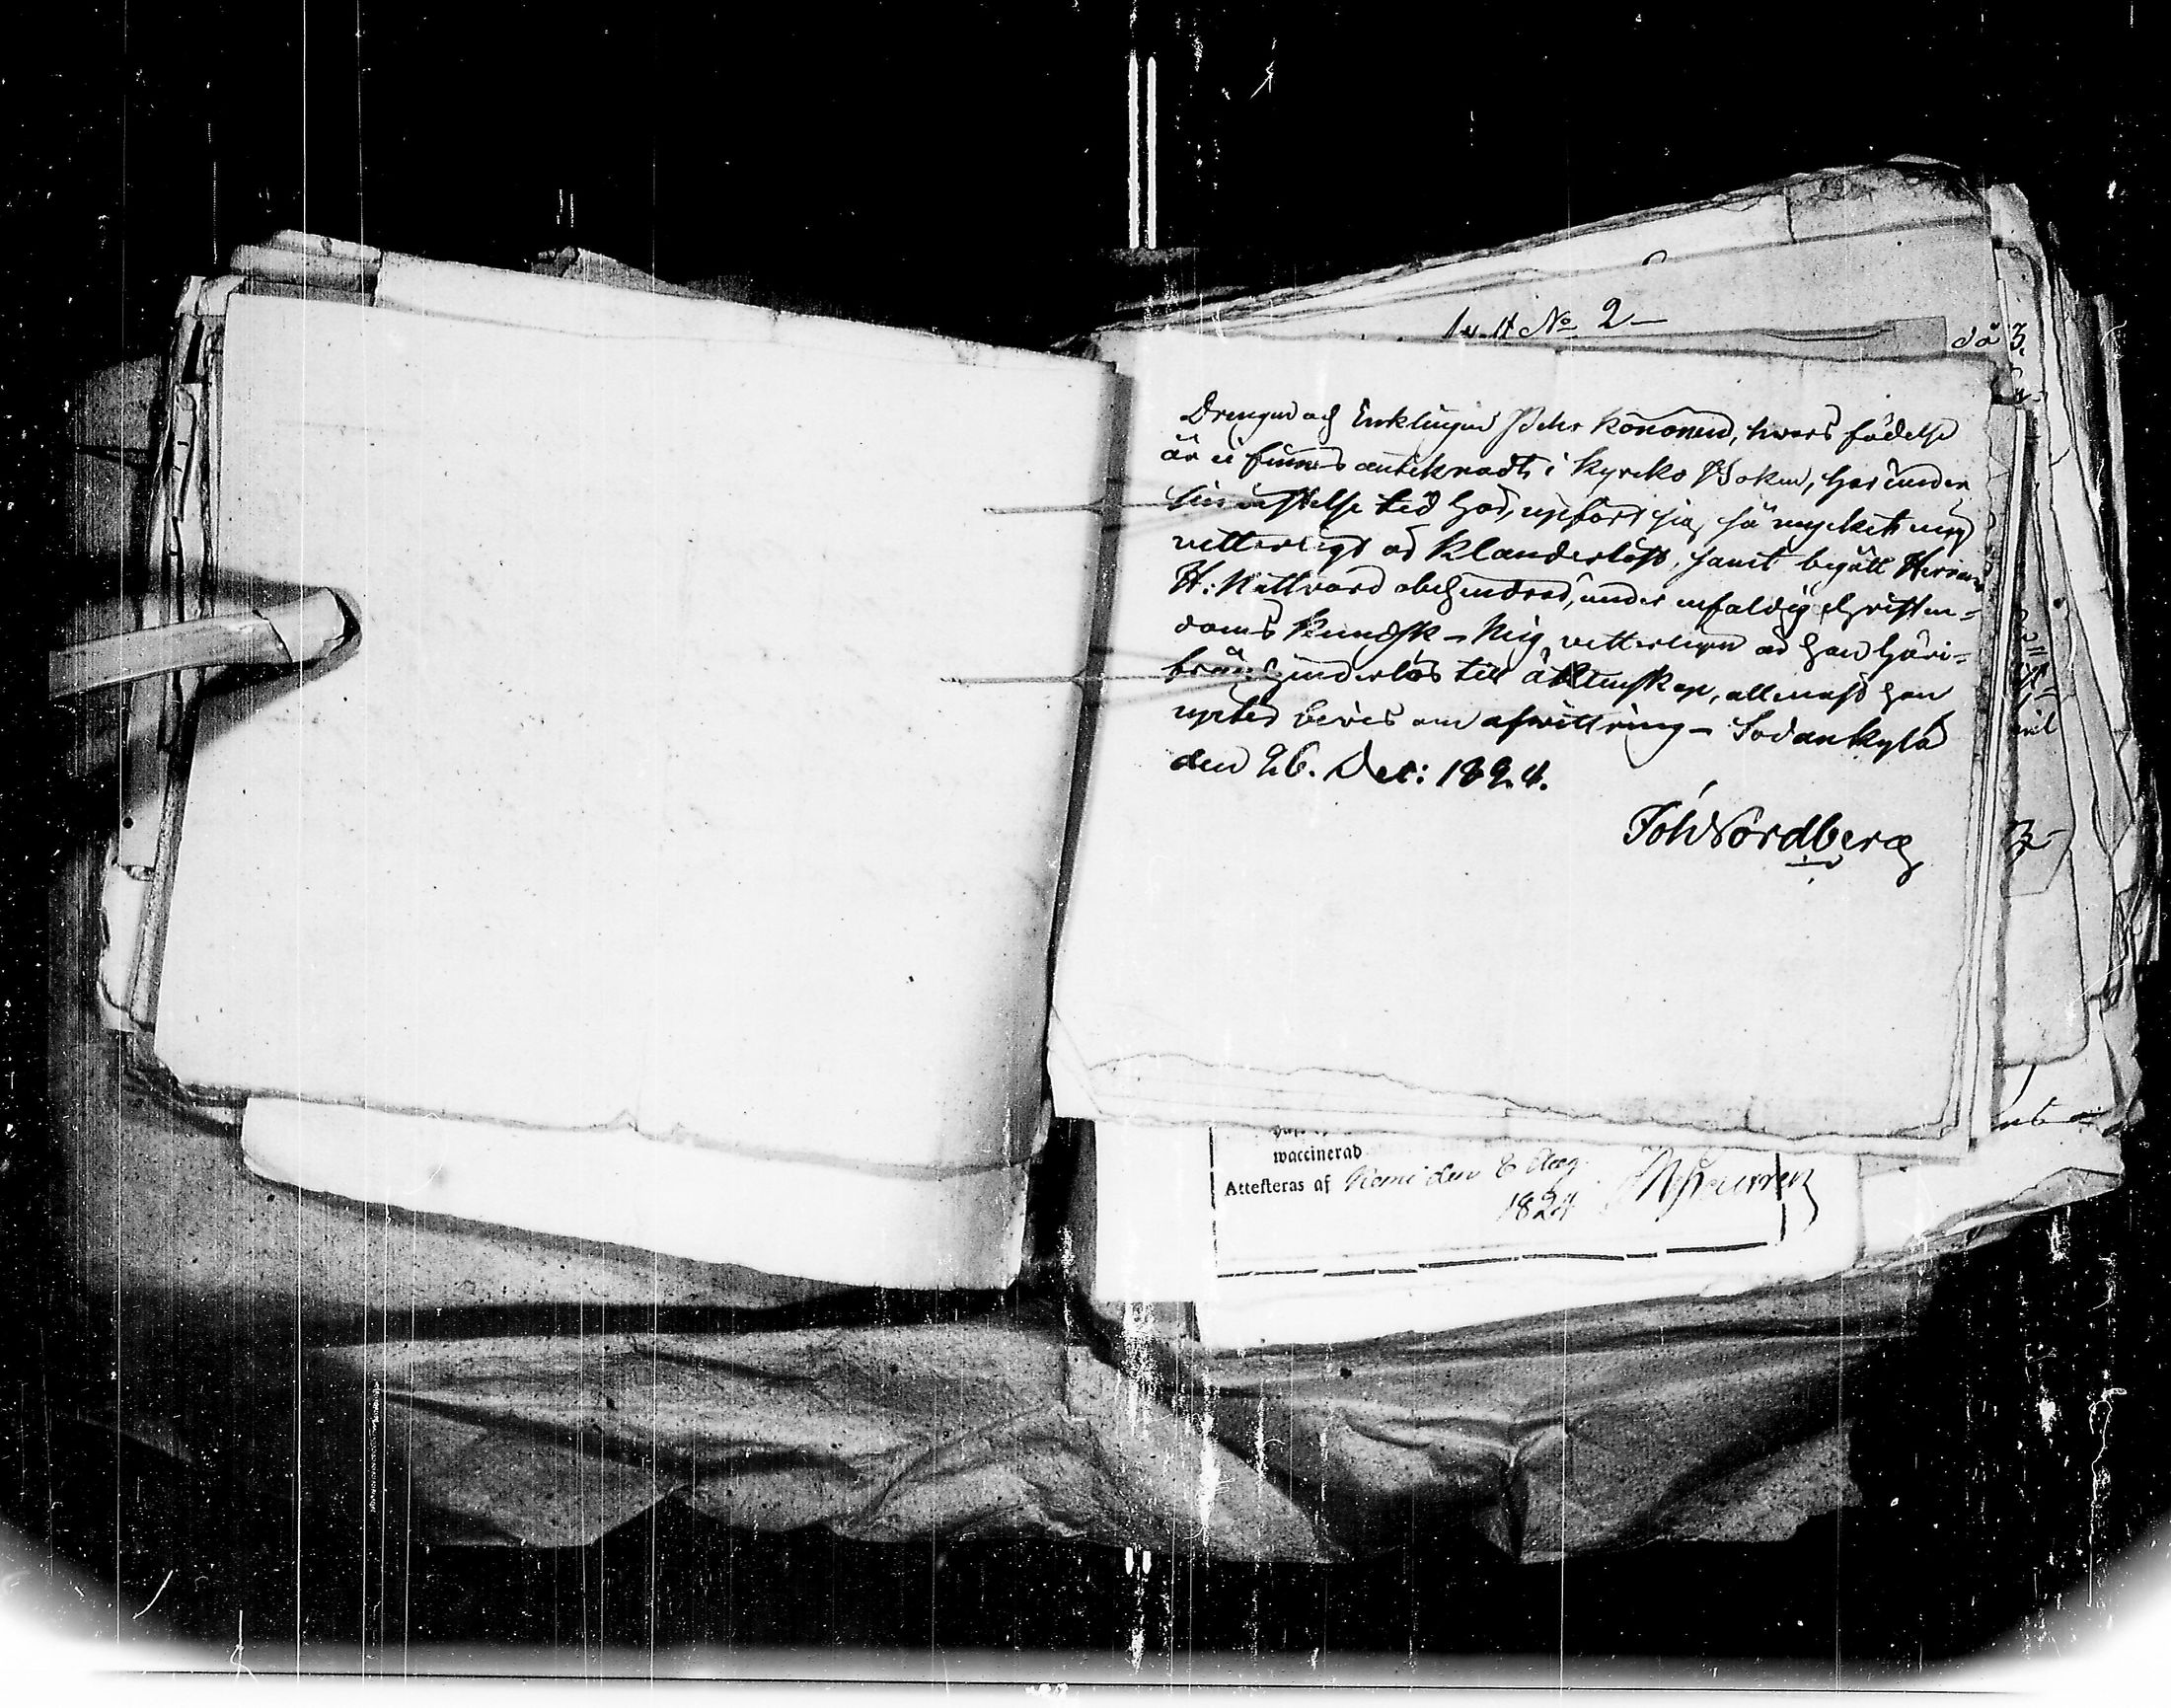 No 2
då 3.
Drengen och Enklingen Pehr Könönen, hvars födelse
år ei finnes anteknadt i Kyrko Boken, har under
sin vistelse tid här, upfört sig, så mycket mig
vetterligt är klanderlöst, samt begått Herrans
H: Nattvard obehindrad, under enfaldig Christen-
doms kundsk– Mig vetterligen är han häri-
från hinderlös till äktenskap, allenast han
upter bevis om afvittring – Sodankylä
den 26. Dec: 1824.
Joh Nordberg
waccinerad
Attesteras af Kemi den 8 Aug.
1824